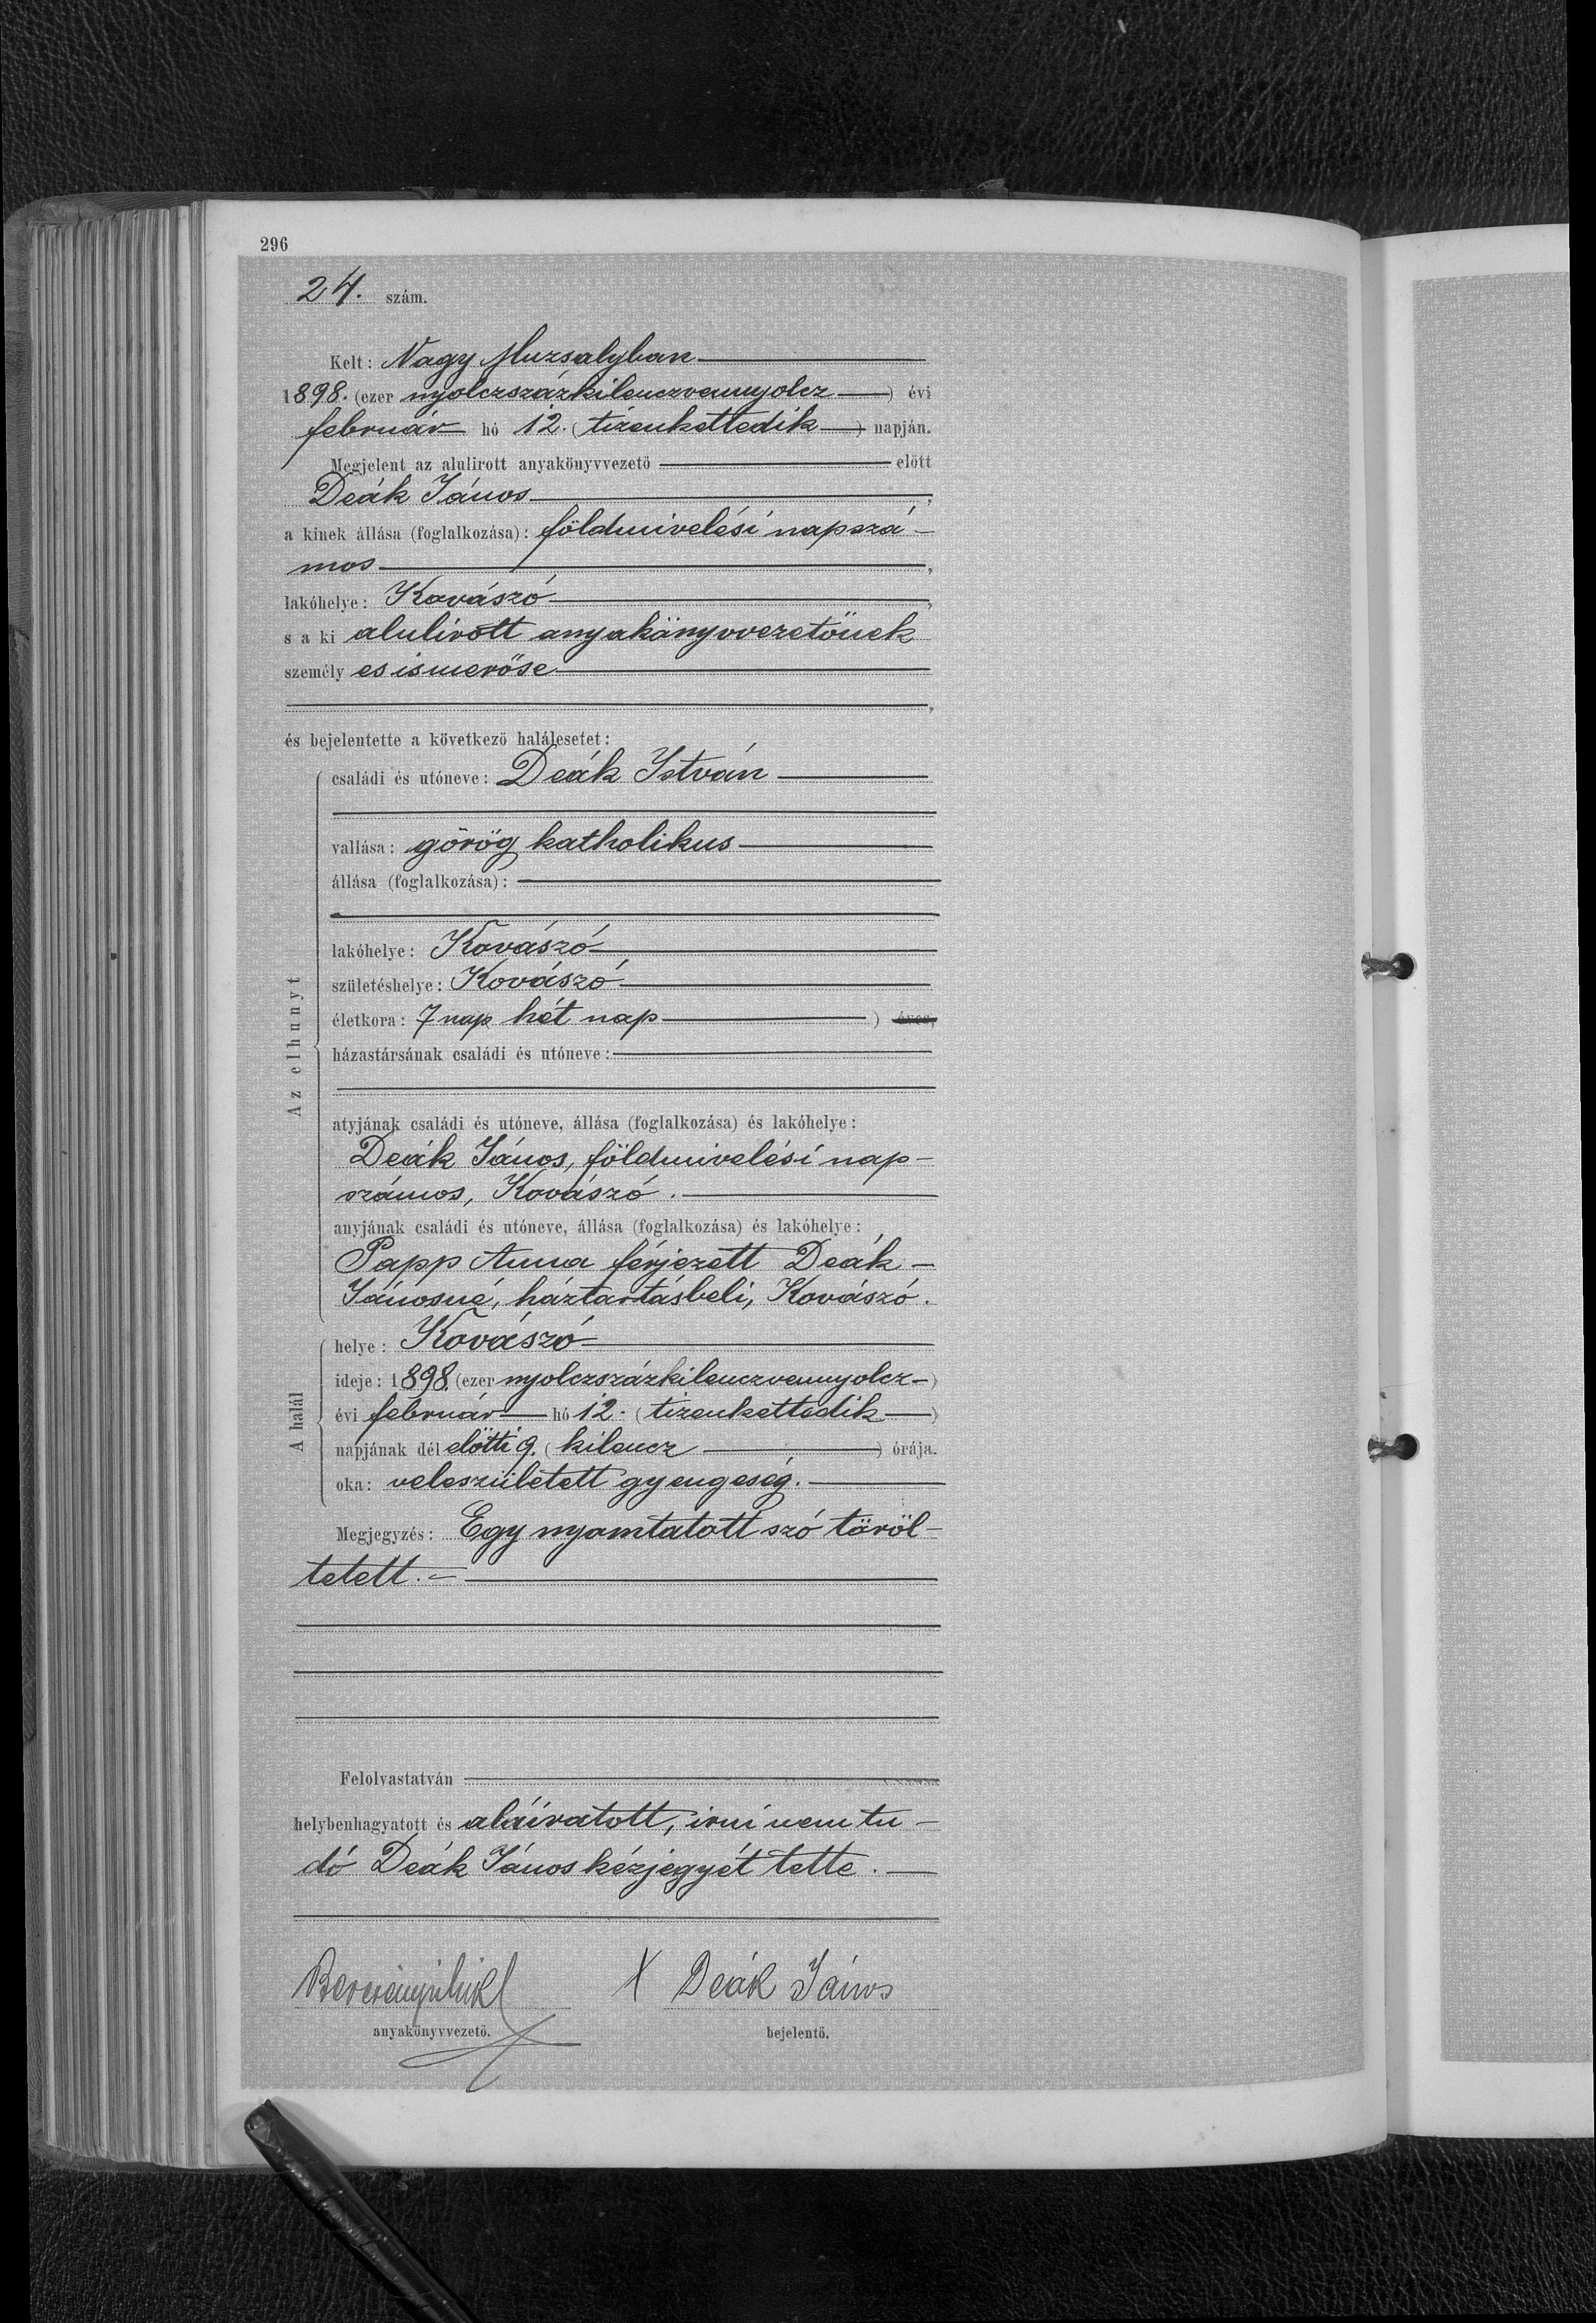 296
24. szám.
Kelt: Nagy Muzsalyban
1898. (ezer nyolczszázkilenczvennyolcz) évi
február hó 12. (tizenkettedik) napján.
Megjelent az alulirott anyakönyvvezető előtt
Deák János,
a kinek állása (foglalkozása): földmivelési napszá-
mos,
lakóhelye: Kovászó,
s a ki alulirott anyakönyvvezetőnek
személyes ismerőse
,
és bejelentette a következő halálesetet:
Az elhunyt
családi és utóneve: Deák István
vallása: görög katholikus
állása (foglalkozása):
lakóhelye: Kovászó
születéshelye: Kovászó
életkora: 7 nap hét nap ) éves,
házastársának családi és utóneve:
atyjának családi és utóneve, állása (foglalkozása) és lakóhelye:
Deák János, földmivelési nap-
számos, Kovászó.
anyjának családi és utóneve, állása (foglalkozása) és lakóhelye:
Papp Anna férjezett Deák-
Jánosné, háztartásbeli, Kovászó.
A halál
helye: Kovászó
ideje: 1898. (ezer nyolczszázkilenczvennyolcz-)
évi február hó 12. (tizenkettedik)
napjának dél előtti 9. (kilencz) órája.
oka: veleszületett gyengeség.
Megjegyzés: Egy nyomtatott szó töröl-
tetett.-
Felolvastatván
helybenhagyatott és aláíratott, irni nem tu-
dó Deák János kézjegyét tette.
X Deák János
anyakönyvvezető. bejelentő.